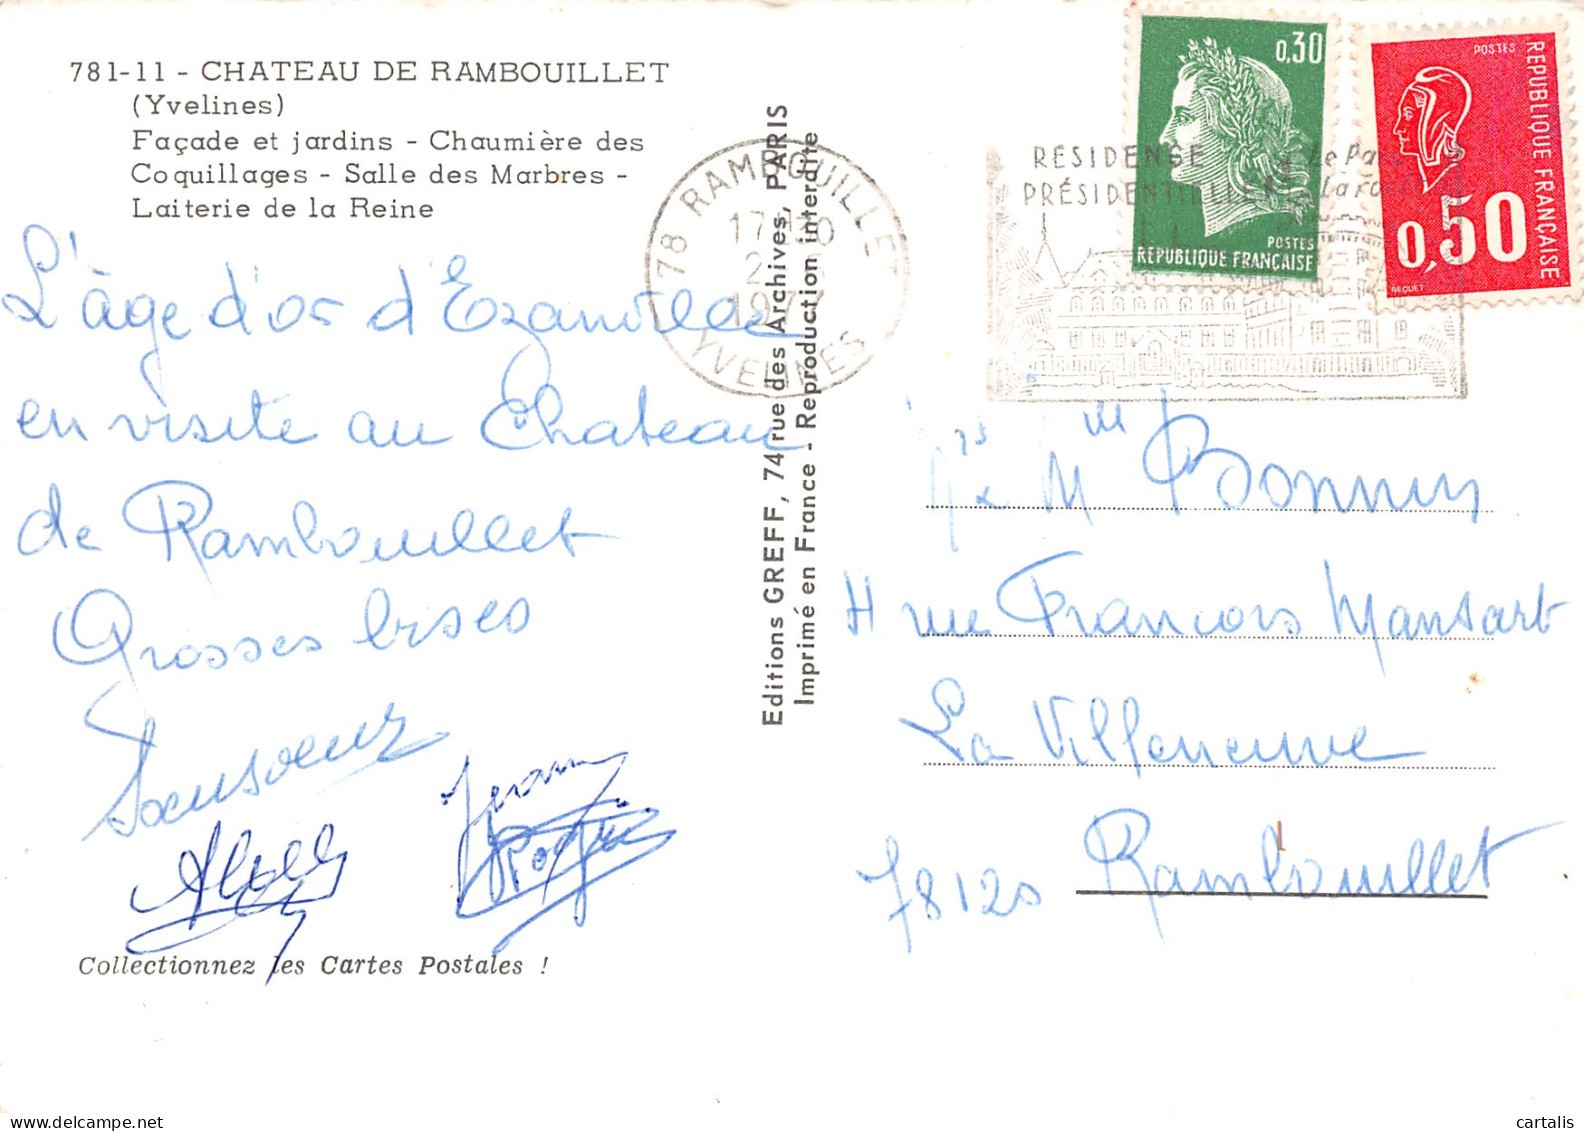 781-11 - CHATEAU DE RAMBOUILLET
(Yvelines)
Façade et jardins - Chaumière des
Coquillages - Salle des Marbres -
Laiterie de la Reine
L'âge d'or d'Ezanville
en visite au Chateau
de Rambouillet
Grosses bises
Collectionnez les Cartes Postales !
Editions GREFF, 74 rue des Archives, PARIS
Imprimé en France - Reproduction interdite
78 RAMBOUILLET
1977
YVELINES
RÉSIDENCE
PRÉSIDENTIELLE
0,30
POSTES
REPUBLIQUE FRANÇAISE
POSTES
REPUBLIQUE FRANÇAISE
0,50
BEQUET
rue Francois Mansart
La Villeneuve
78120 Rambouillet
cartalis
delcampe.net